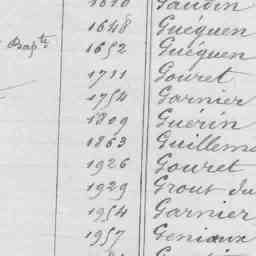 Gaudin
1648 Guéguen
Bapte 1652 Guéguen
1711 Gouret
1754 Garnier
1809 Guérin
1863 Guillemo
1926 Gouret
1929 Grout du
1954 Garnier
1957 Geniaux